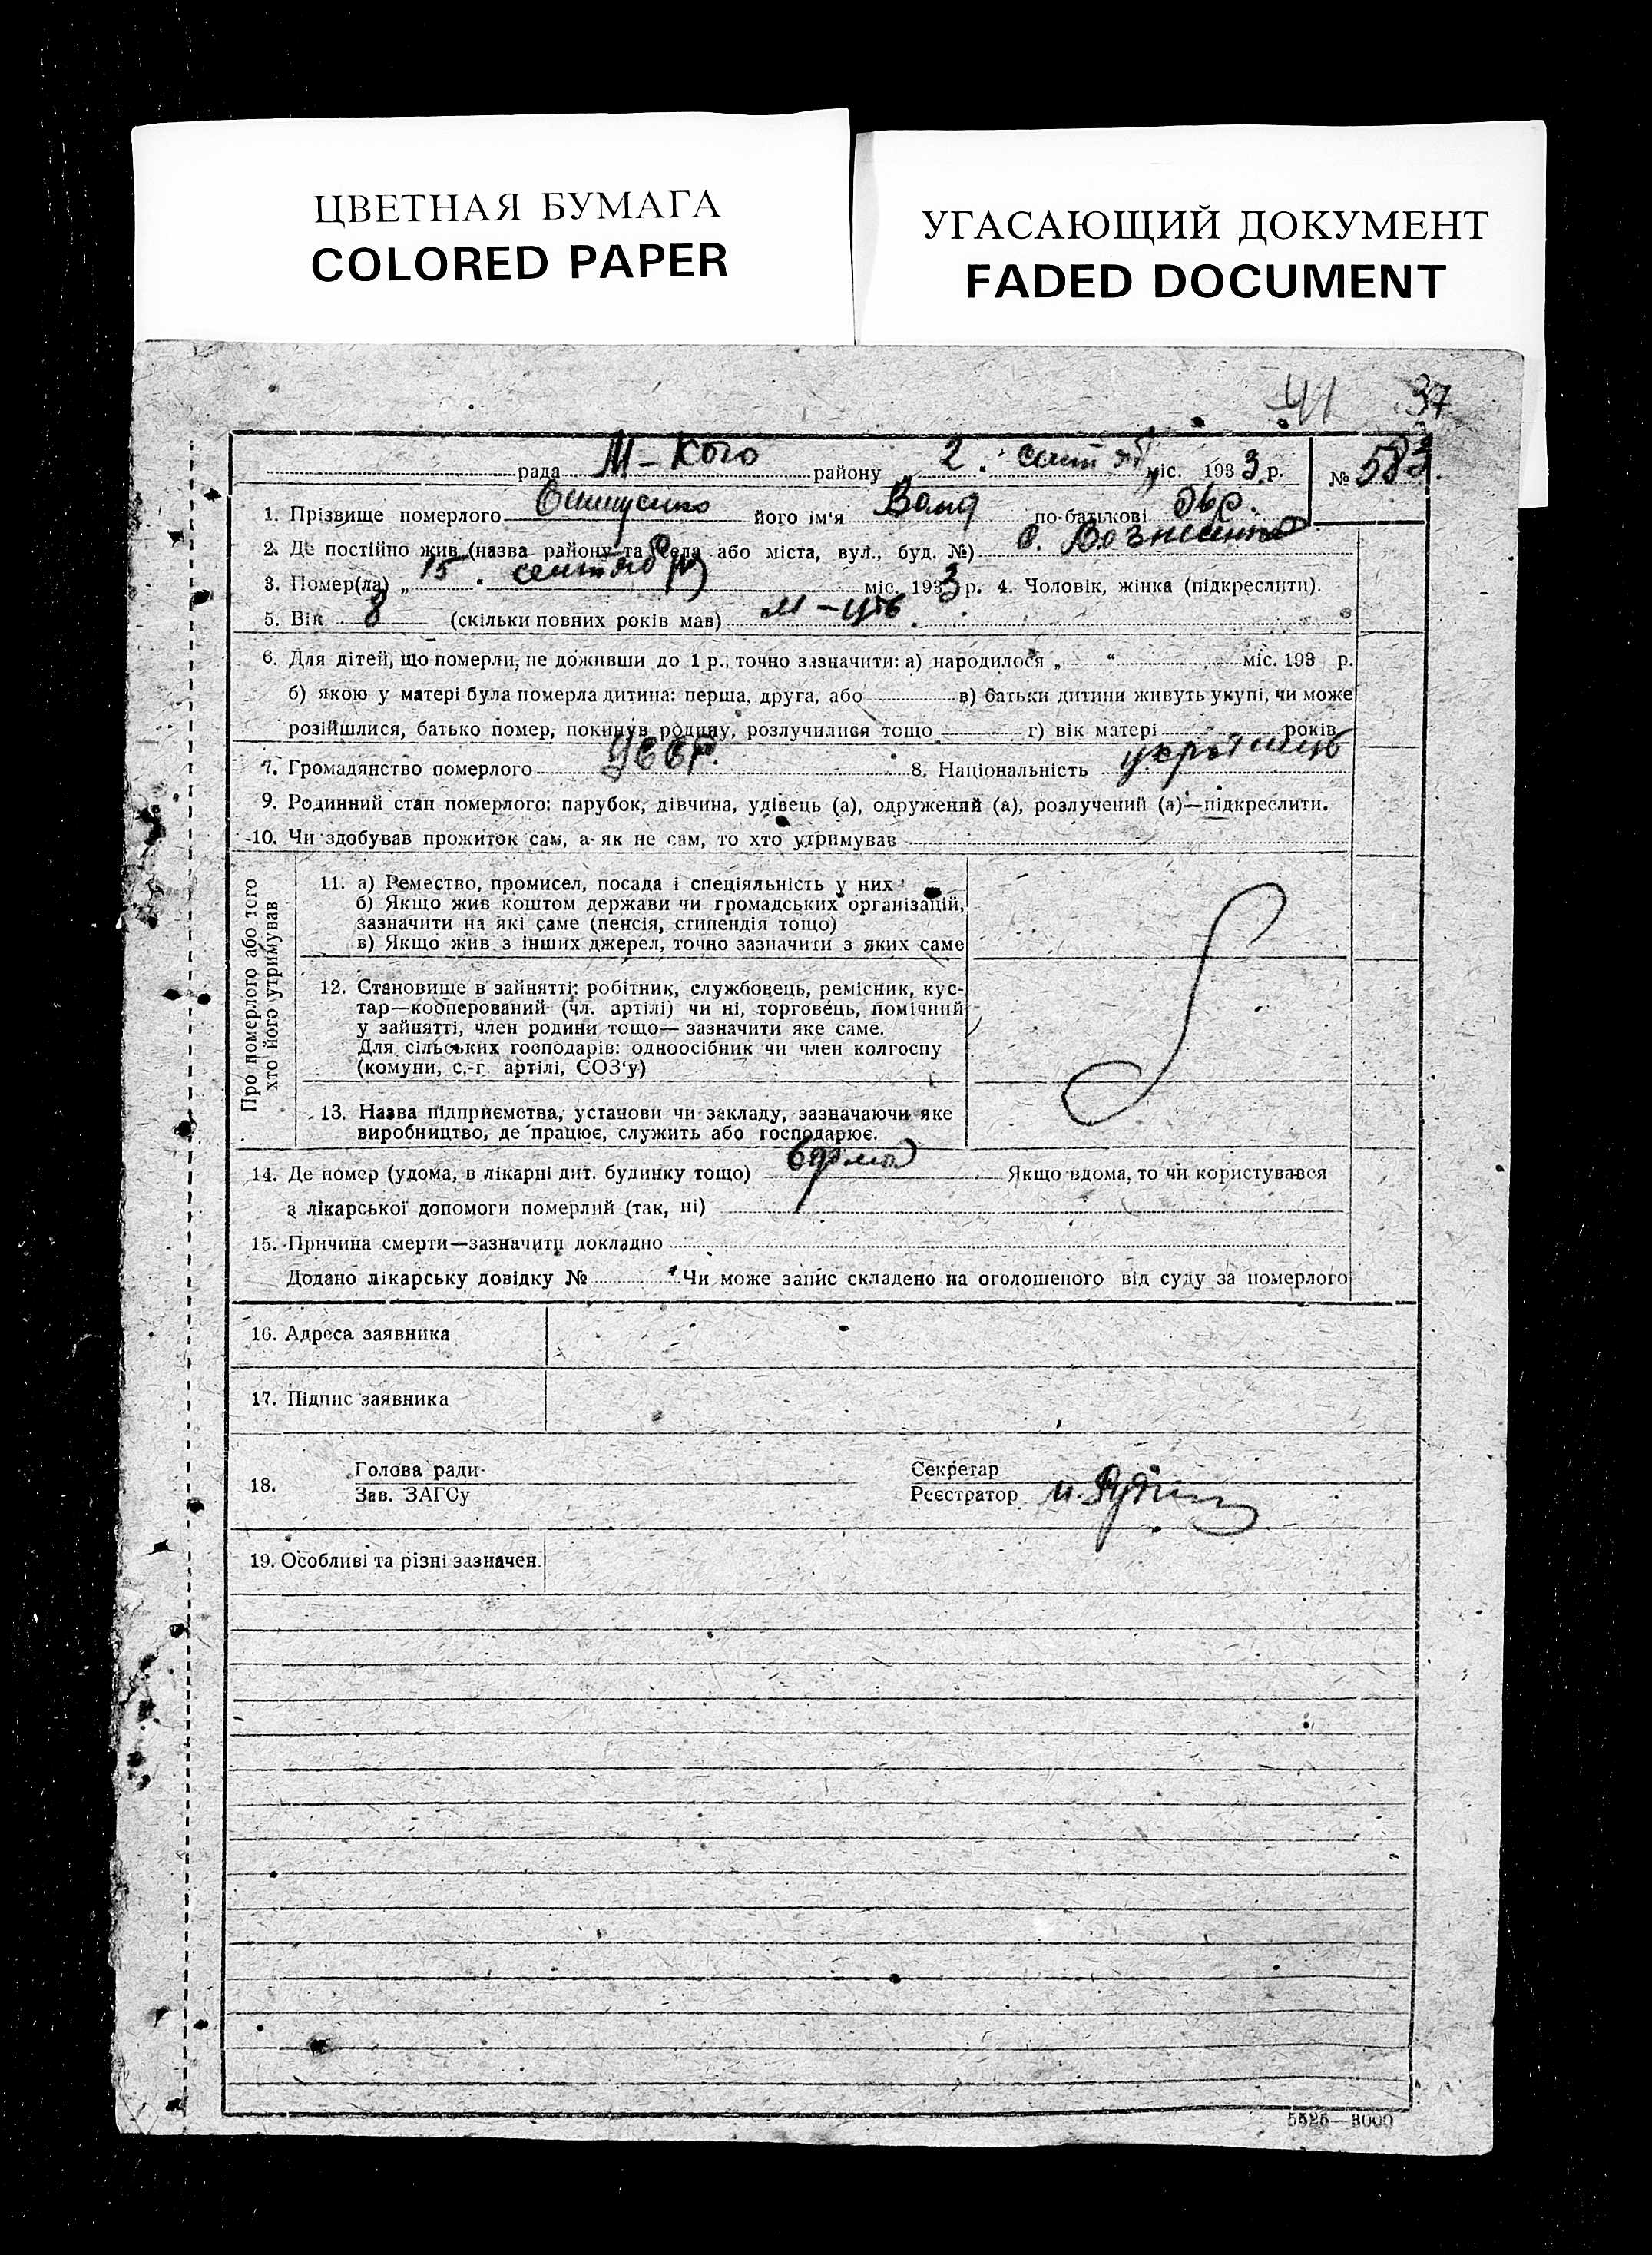 ЦВЕТНАЯ БУМАГА
COLORED PAPER
УГАСАЮЩИЙ ДОКУМЕНТ
FADED DOCUMENT
41 37
рада М-Кого району „ 2 " сент міс. 193 3 р. № 583
1. Прізвище померлого його ім'я по-батькові
2. Де постійно жив (назва району та села або міста, вул., буд. №) с.
3. Помер(ла) „ 15 " сентября міс. 193 3 р. 4. Чоловік, жінка (підкреслити).
5. Вік 8 (скільки повних років мав) м-цев.
6. Для дітей, що померли, не доживши до 1 р., точно зазначити: а) народилося „ “ міс. 193 р.
б) якою у матері була померла дитина: перша, друга, або в) батьки дитини живуть укупі, чи може
розійшлися, батько помер, покинув родину, розлучилися тощо г) вік матері років
7. Громадянство померлого УССР. 8. Національність
9. Родинний стан померлого: парубок, дівчина, удівець (а), одружений (а), розлучений (а)—підкреслити.
10. Чи здобував прожиток сам, а як не сам, то хто утримував
Про померлого або того
хто його утримував
11. а) Ремество, промисел, посада і спеціяльність у них
б) Якщо жив коштом держави чи громадських організацій,
зазначити на які саме (пенсія, стипендія тощо)
в) Якщо жив з інших джерел, точно зазначити з яких саме
12. Становище в зайнятті: робітник, службовець, ремісник, кус-
тар—кооперований (чл. артілі) чи ні, торговець, помічний
у зайнятті, член родини тощо— зазначити яке саме.
Для сільських господарів: одноосібник чи член колгоспу
(комуни, с.-г артілі, СОЗ'у)
13. Назва підприємства, установи чи закладу, зазначаючи яке
виробництво, де працює, служить або господарює.
14. Де помер (удома, в лікарні дит. будинку тощо) Якщо вдома, то чи користувався
з лікарської допомоги померлий (так, ні)
15. Причина смерти—зазначити докладно
Додано лікарську довідку № Чи може запис складено на оголошеного від суду за померлого
16. Адреса заявника
17. Підпис заявника
18. Голова ради Секретар
Зав. ЗАГСу Реєстратор
19. Особливі та різні зазначен.
5525—3000